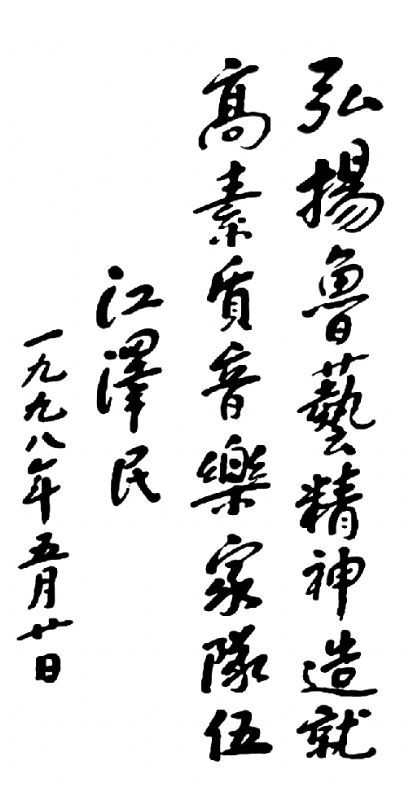 弘揚魯藝精神造就
高素质音樂家隊伍
江澤民
一九九八年五月廿日